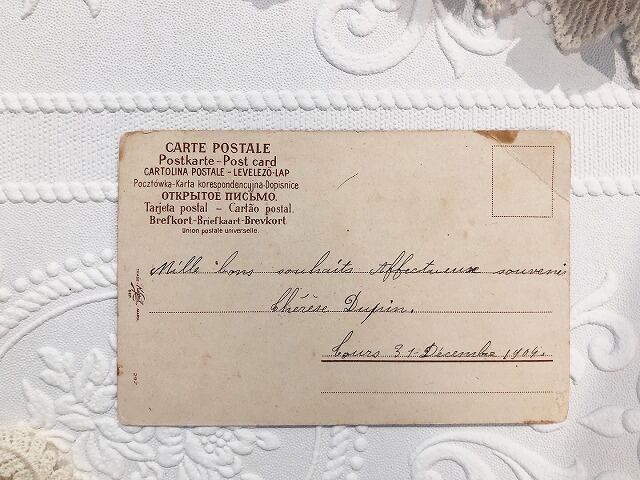 CARTE POSTALE
Postkarte - Post card
CARTOLINA POSTALE - LEVELEZŐ-LAP
Pocztówka-Karta korespondencyjna-Dopisnice
ОТКРЫТОЕ ПИСЬМО.
Tarjeta postal - Cartão postal.
Brefkort-Briefkaart-Brevkort
Union postale universelle.
Mille bons souhaits Affectueux souvenir
Thérèse Dupin.
Cours 31 Décembre 1904.
TRADE MARK
292